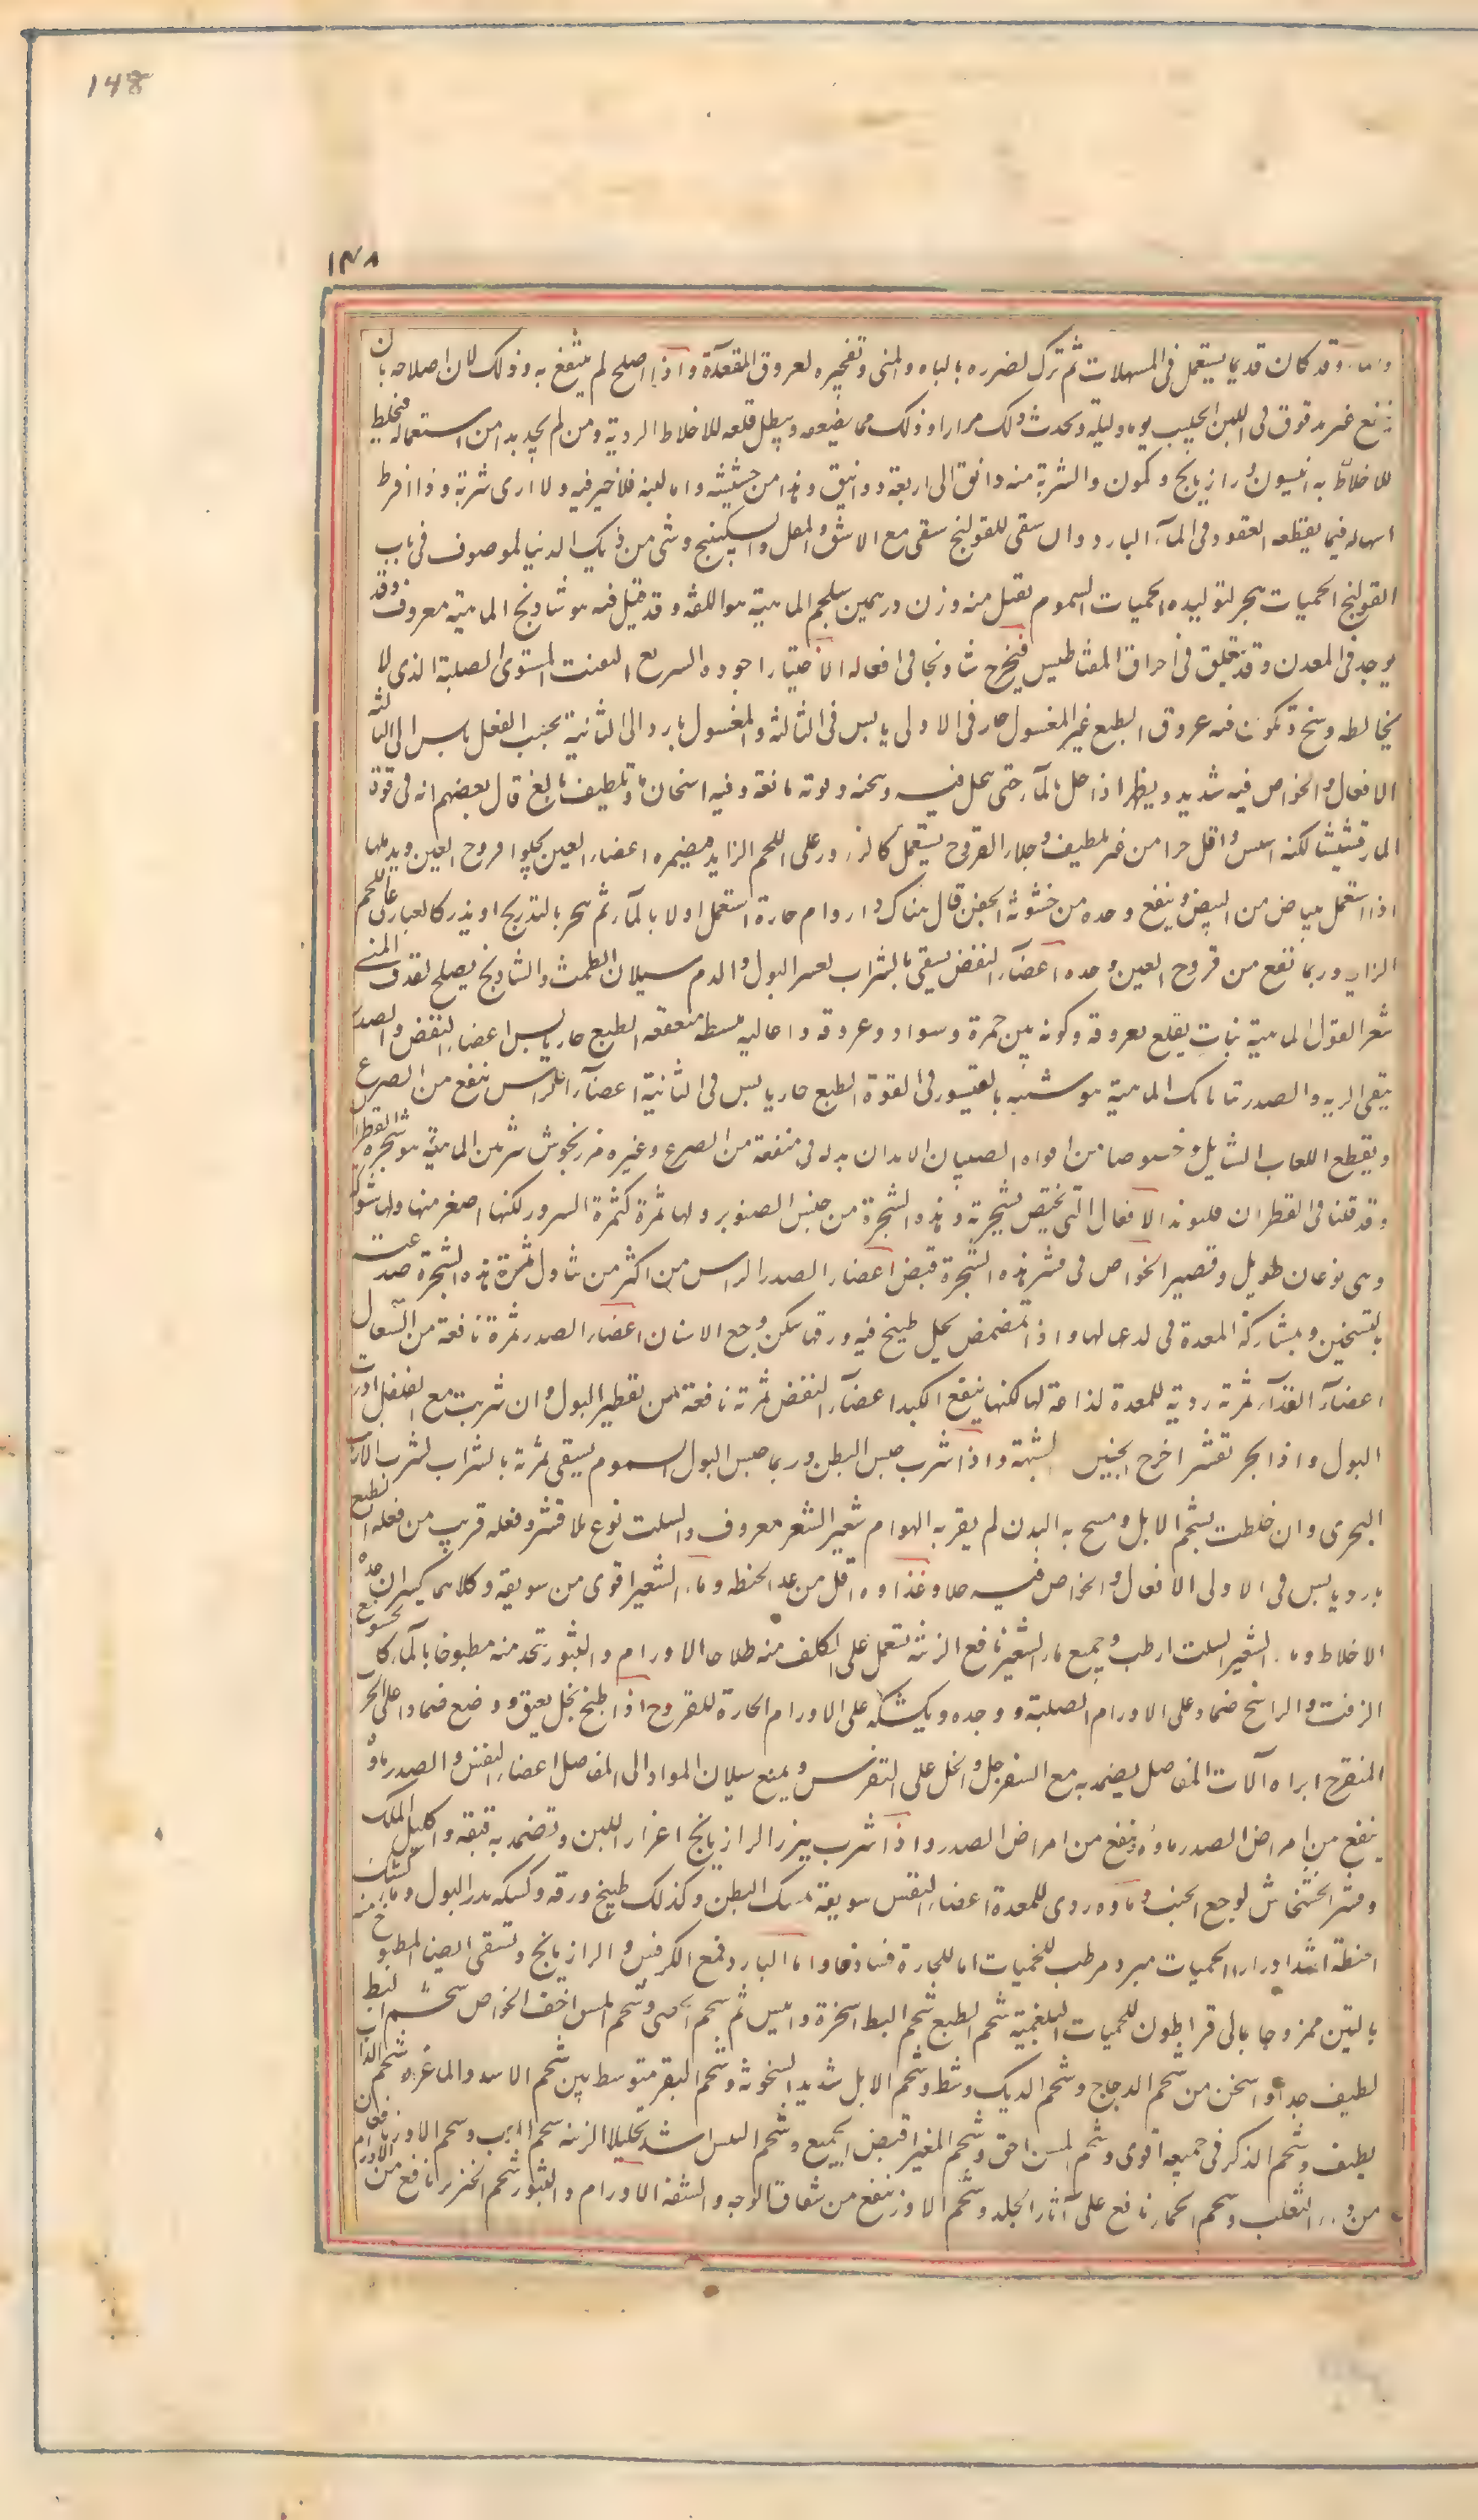 148
١٤٨
وقد كان قديما يستعمل فى المسهلات ثم ترك لضرره بالباه والمنى وتفجيره لعروق المقعدة واذا اصلح لم ينتفع به وذلك لان اصلاحه بان
ينقع غير مدقوق فى اللبن الحليب يوما وليلة ويحدث ذلك مرارا وذلك مما يضيعه ويبطل قلعه للاخلاط الردية ومن لم يجد بدا من استعماله فليخلط
للاخلاط به انيسون و رازيانج وكمون والشربة منه دانق الى اربعة دوانيق وهذا من حشيشه واما لبنه فلا خير فيه ولا ارى شربة واذا افرط
اسهاله فيما يقطعه القعود فى المآء البارد وان سقى للقولنج سقى مع الاشق والمقل والسكبينج وشى من الموصوف فى باب
القولنج الحميات يهجر لتوليده الحميات السموم يقتل منه وزن درهمين سلجم الماهية هو اللفت وقد قيل فيه شادنج الماهية معروف وقد
يوجد فى المعدن وقد فى احراق المغناطيس فيخرج شادنجا فى افعاله الاختيار اجوده السريع التفتت المستوى الصلبة الذى لا
يخالطه وسخ و تكون فيه عروق الطبع غير المغسول حار فى الاولى يابس فى الثالثة والمغسول بارد الى الثانية بحسب الفعل يابس الى الثالثة
الافعال والخواص فيه شديد ويظهر اذا حل بالمآء حتى يحل فيه وسخنه وقوته مانعة وفيه اسخان ما وتلطيف بالغ قال بعضهم انه فى قوة
المارقشيثا لكنه ايبس واقل حرا من غير تلطيف وجلاء القروح يستعمل كالذرور على اللحم الزايد فيضمره اعضاء العين يجلو قروح العين ويدملها
اذا استعمل ببياض من البيض وينفع وحده من خشونة الجفن قال هناك اورام حارة استعمل اولا بالمآء ثم بالتدريج او يذر كالغبار على اللحم
الزايد وربما نفع من قروح العين وحده اعضآء النفض يسقى بالشراب لعسر البول والدم سيلان الطمث والشادنج يصلح لقذف المنى
القول الماهية نبات يقلع بعروقه وكونه بين حمرة وسواد وعروقه الطبع حار يابس اعضاء النفض والصدر
ينقى الريه والصدر الماهية هو شبيه بالقيسور فى القوة الطبع حار يابس فى الثانية اعضآء الراس ينفع من الصرع
ويقطع اللعاب السايل وخصوصا من افواه الصبيان الابدان بدله فى منفعته من الصرع وغيره مرزنجوش شربين الماهية هو شجرة القطران
وقد قلنا فى القطران الافعال التى تختص بشجرته وهذه الشجرة من جنس الصنوبر ولها ثمرة كثمرة السرو لكنها اصغر منها ولها شوك
وهى نوعان طويل وقصير الخواص فى قشر هذه الشجرة قبض اعضاء الصدر الراس من اكثر من تناول ثمرة هذه الشجرة صدعت
بتسخين وبمشاركة المعدة فى لذعها لها واذا تمضمض بخل طبيخ فيه ورقها سكن وجع الاسنان اعضاء الصدر ثمرة نافعة من السعال
اعضآء الغذآء ثمرته ردية للمعدة لذاعة لها لكنها ينفع الكبد اعضآء النفض ثمرته نافعة من تقطير البول وان شربت مع الفلفل ادرت
البول واذا بخر بقشر اخرج الجنين المشيمة واذا شرب حبس البطن وربما حبس البول السموم يسقى ثمرته بالشراب لشرب الارنب
البحرى وان خلطت بشحم الايل ومسح به البدن لم يقربه الهوام شعير الشعير معروف والسلت نوع بلا قشر وفعله قريب من فعله الطبع
بارد يابس فى الاولى الافعال والخواص فيه جلا وغذاوه اقل من الحنطه وماء الشعير اقوى من سويقه وكلاهما يكسران حدة
الاخلاط وماء الشعير السلت ارطب وجميع ماء الشعير نافخ الزينة يستعمل على الكلف منه طلا حارا الاورام والبثور يتخذ منه مطبوخا بالمآء كالحسو مع
الزفت والراتينج ضماد على الاورام الصلبة و وحده وبكشكه على الاورام الحارة للقروح اذا طبخ بخل ثقيف ووضع ضمادا على الجرب
المتقرح ابراه آلات المفاصل يضمد به مع السفرجل والخل على النقرس ويمنع سيلان المواد الى المفاصل اعضاء النفس والصدر ماؤه
ينفع من امراض الصدر ماؤه ينفع من امراض الصدر واذا شرب ببزر الرازيانج اغزار اللبن وتضمد به واكليل الملك
وقشر الخشخاش لوجع الجنب وماوه ردى للمعدة اعضاء النفض سويقه يمسك البطن وكذلك طبيخ ورقه وكشكه يدر البول وماء كشك
الحنطة اشد ادرارا الحميات مبرد مرطب للحميات اما للحارة فساذجا واما الباردة فمع الكرفس والرازيانج ويسقى ايضا المطبوخ منه
بالتين ممزوجا بمالى قراطون للحميات البلغمية شحم الطبع شحم البط اسخن ثم شحم الخصى وشحم المسن اخف الخواص شحم البط
لطيف جدا و اسخن من شحم الدجاج وشحم الديك وسط وشحم الايل شديد السخونة وشحم البقر متوسط بين شحم الاسد والماعزه شحم الذئاب
لطيف وشحم الذكر فى جميعه اقوى وشحم المسن احق وشحم العنز اقبض الجميع وشحم التيس اشد تحليلا الزينة شحم الدب وشحم الاوز نافعان
من داء الثعلب وشحم الحمار نافع على آثار الجلد وشحم الاوز ينفع من شقاق الوجه والشفة الاورام والبثور شحم الخنزير نافع من الاورام